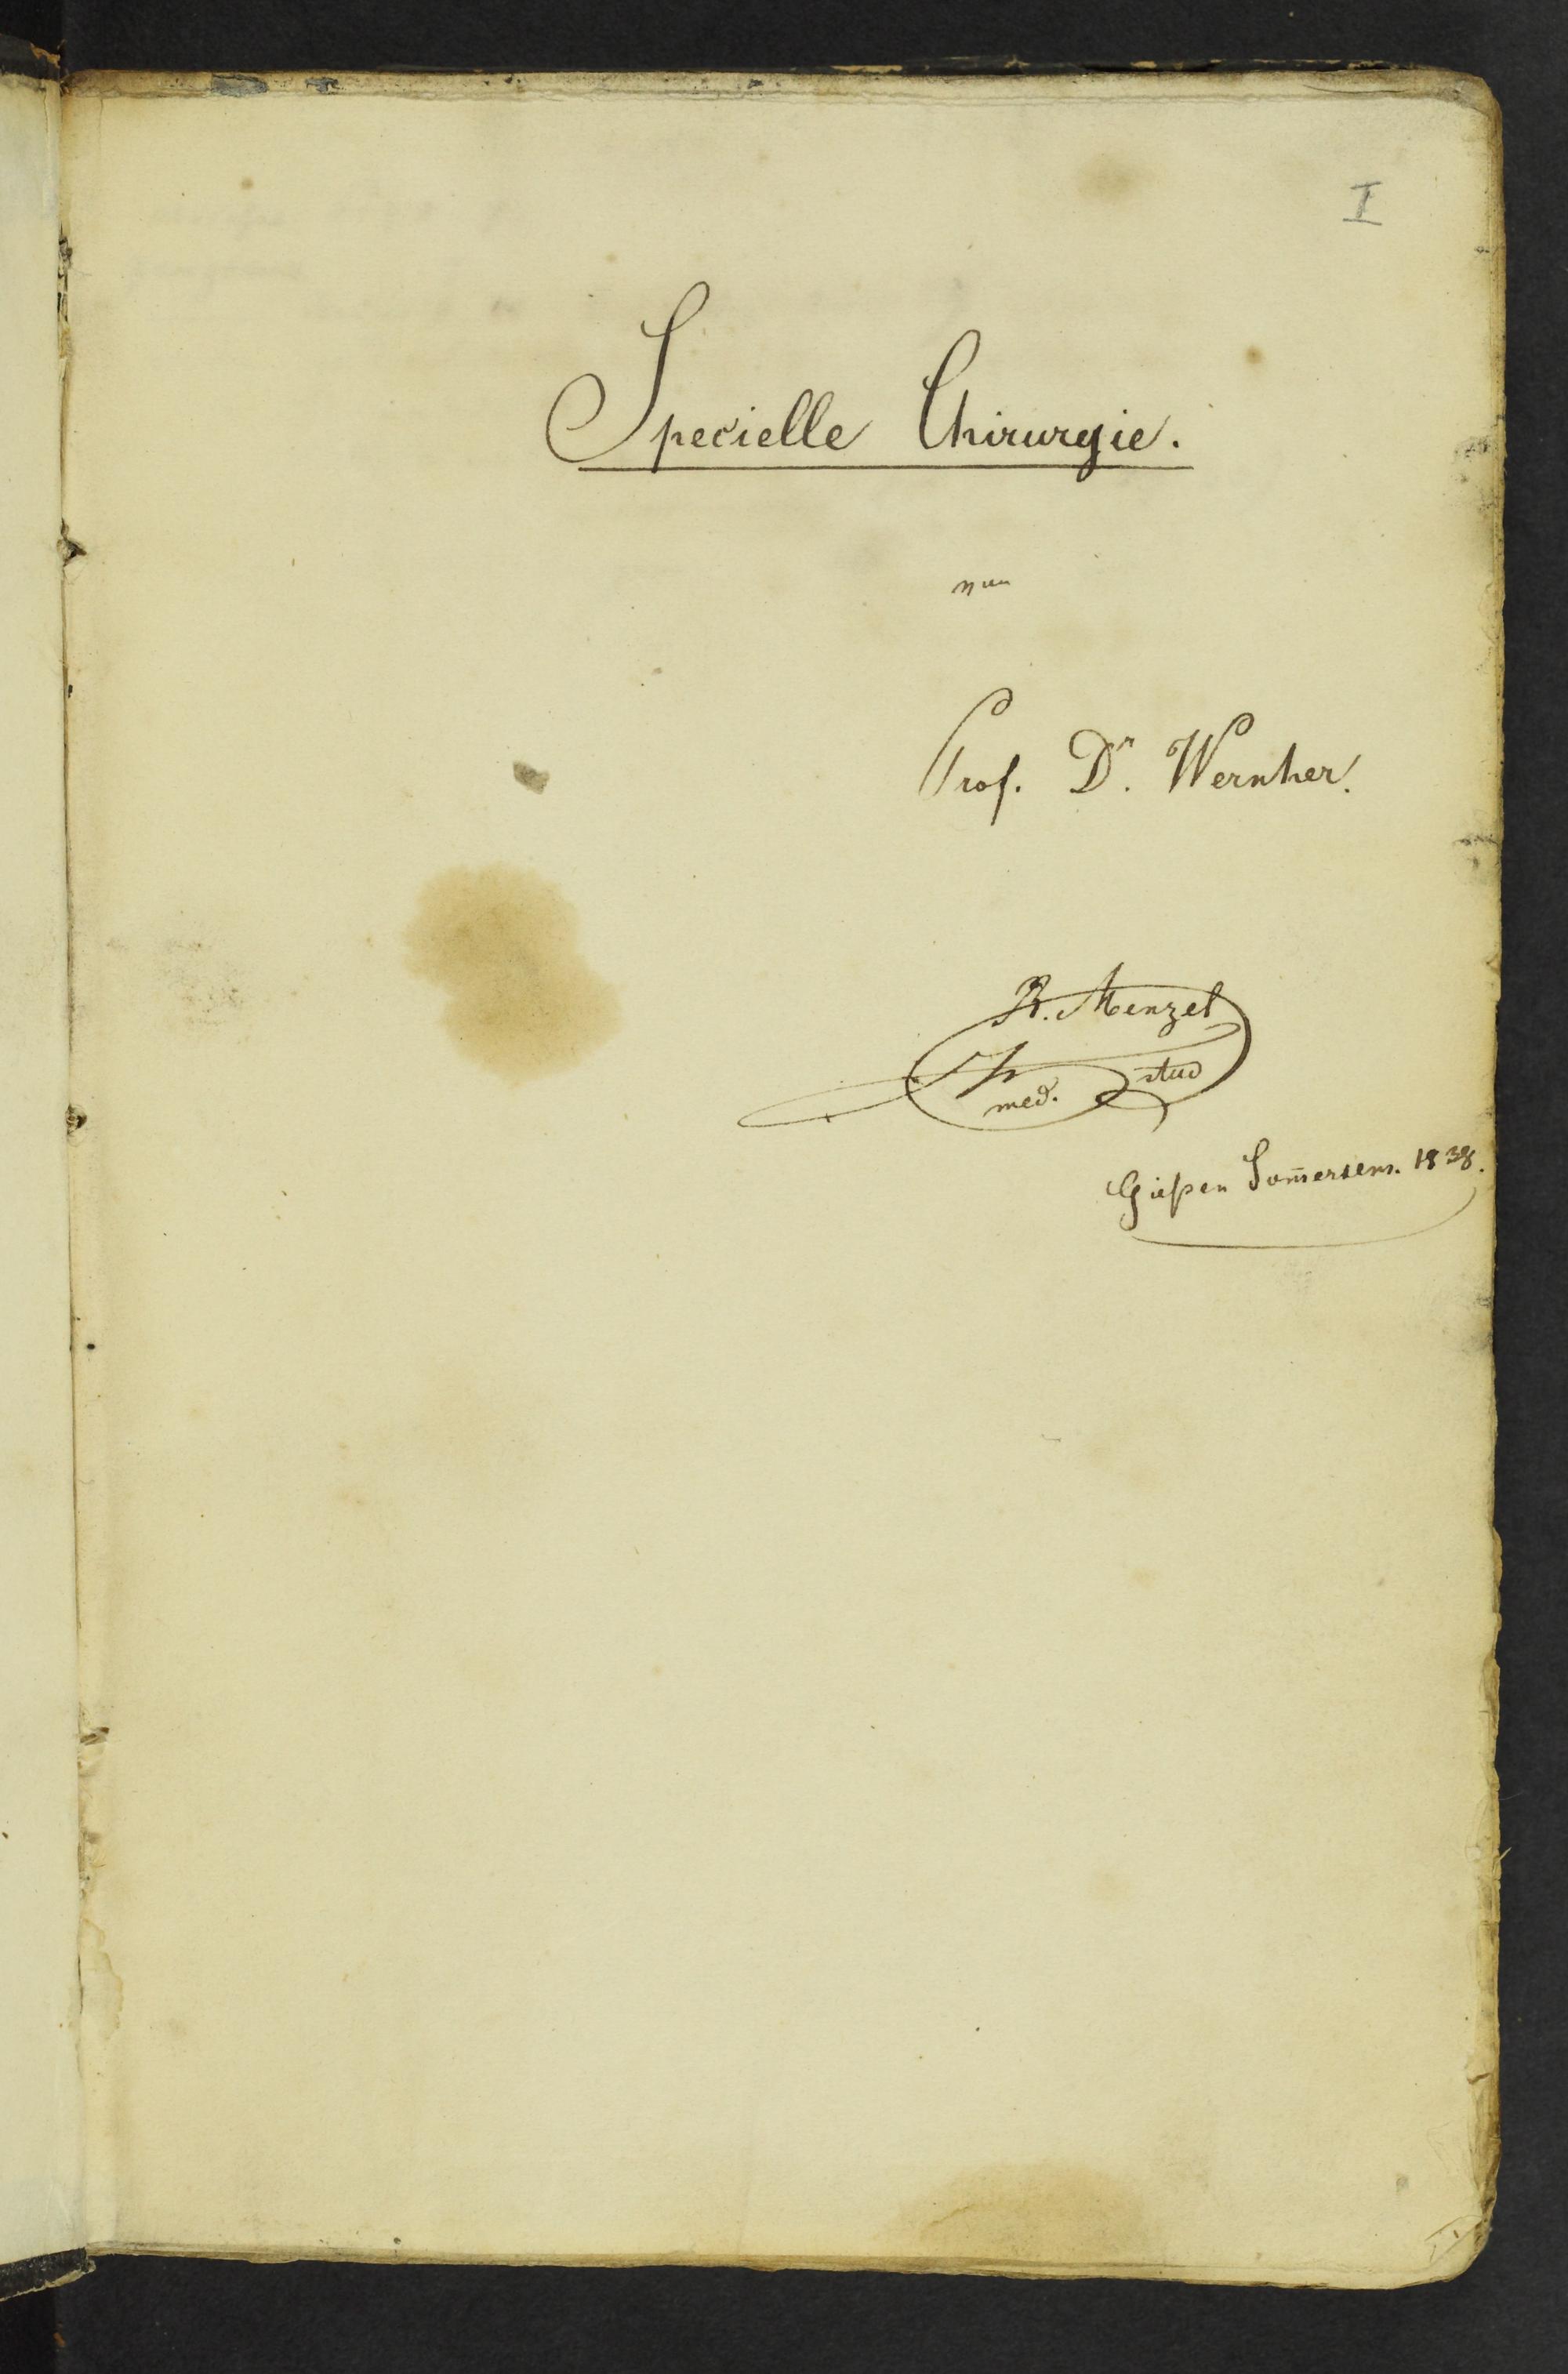 I
Specielle Chirurgie.
von
Prof. Dr. Wernher.
R. Menzel
stud
med.
Gießen Som̅ersem. 1838.